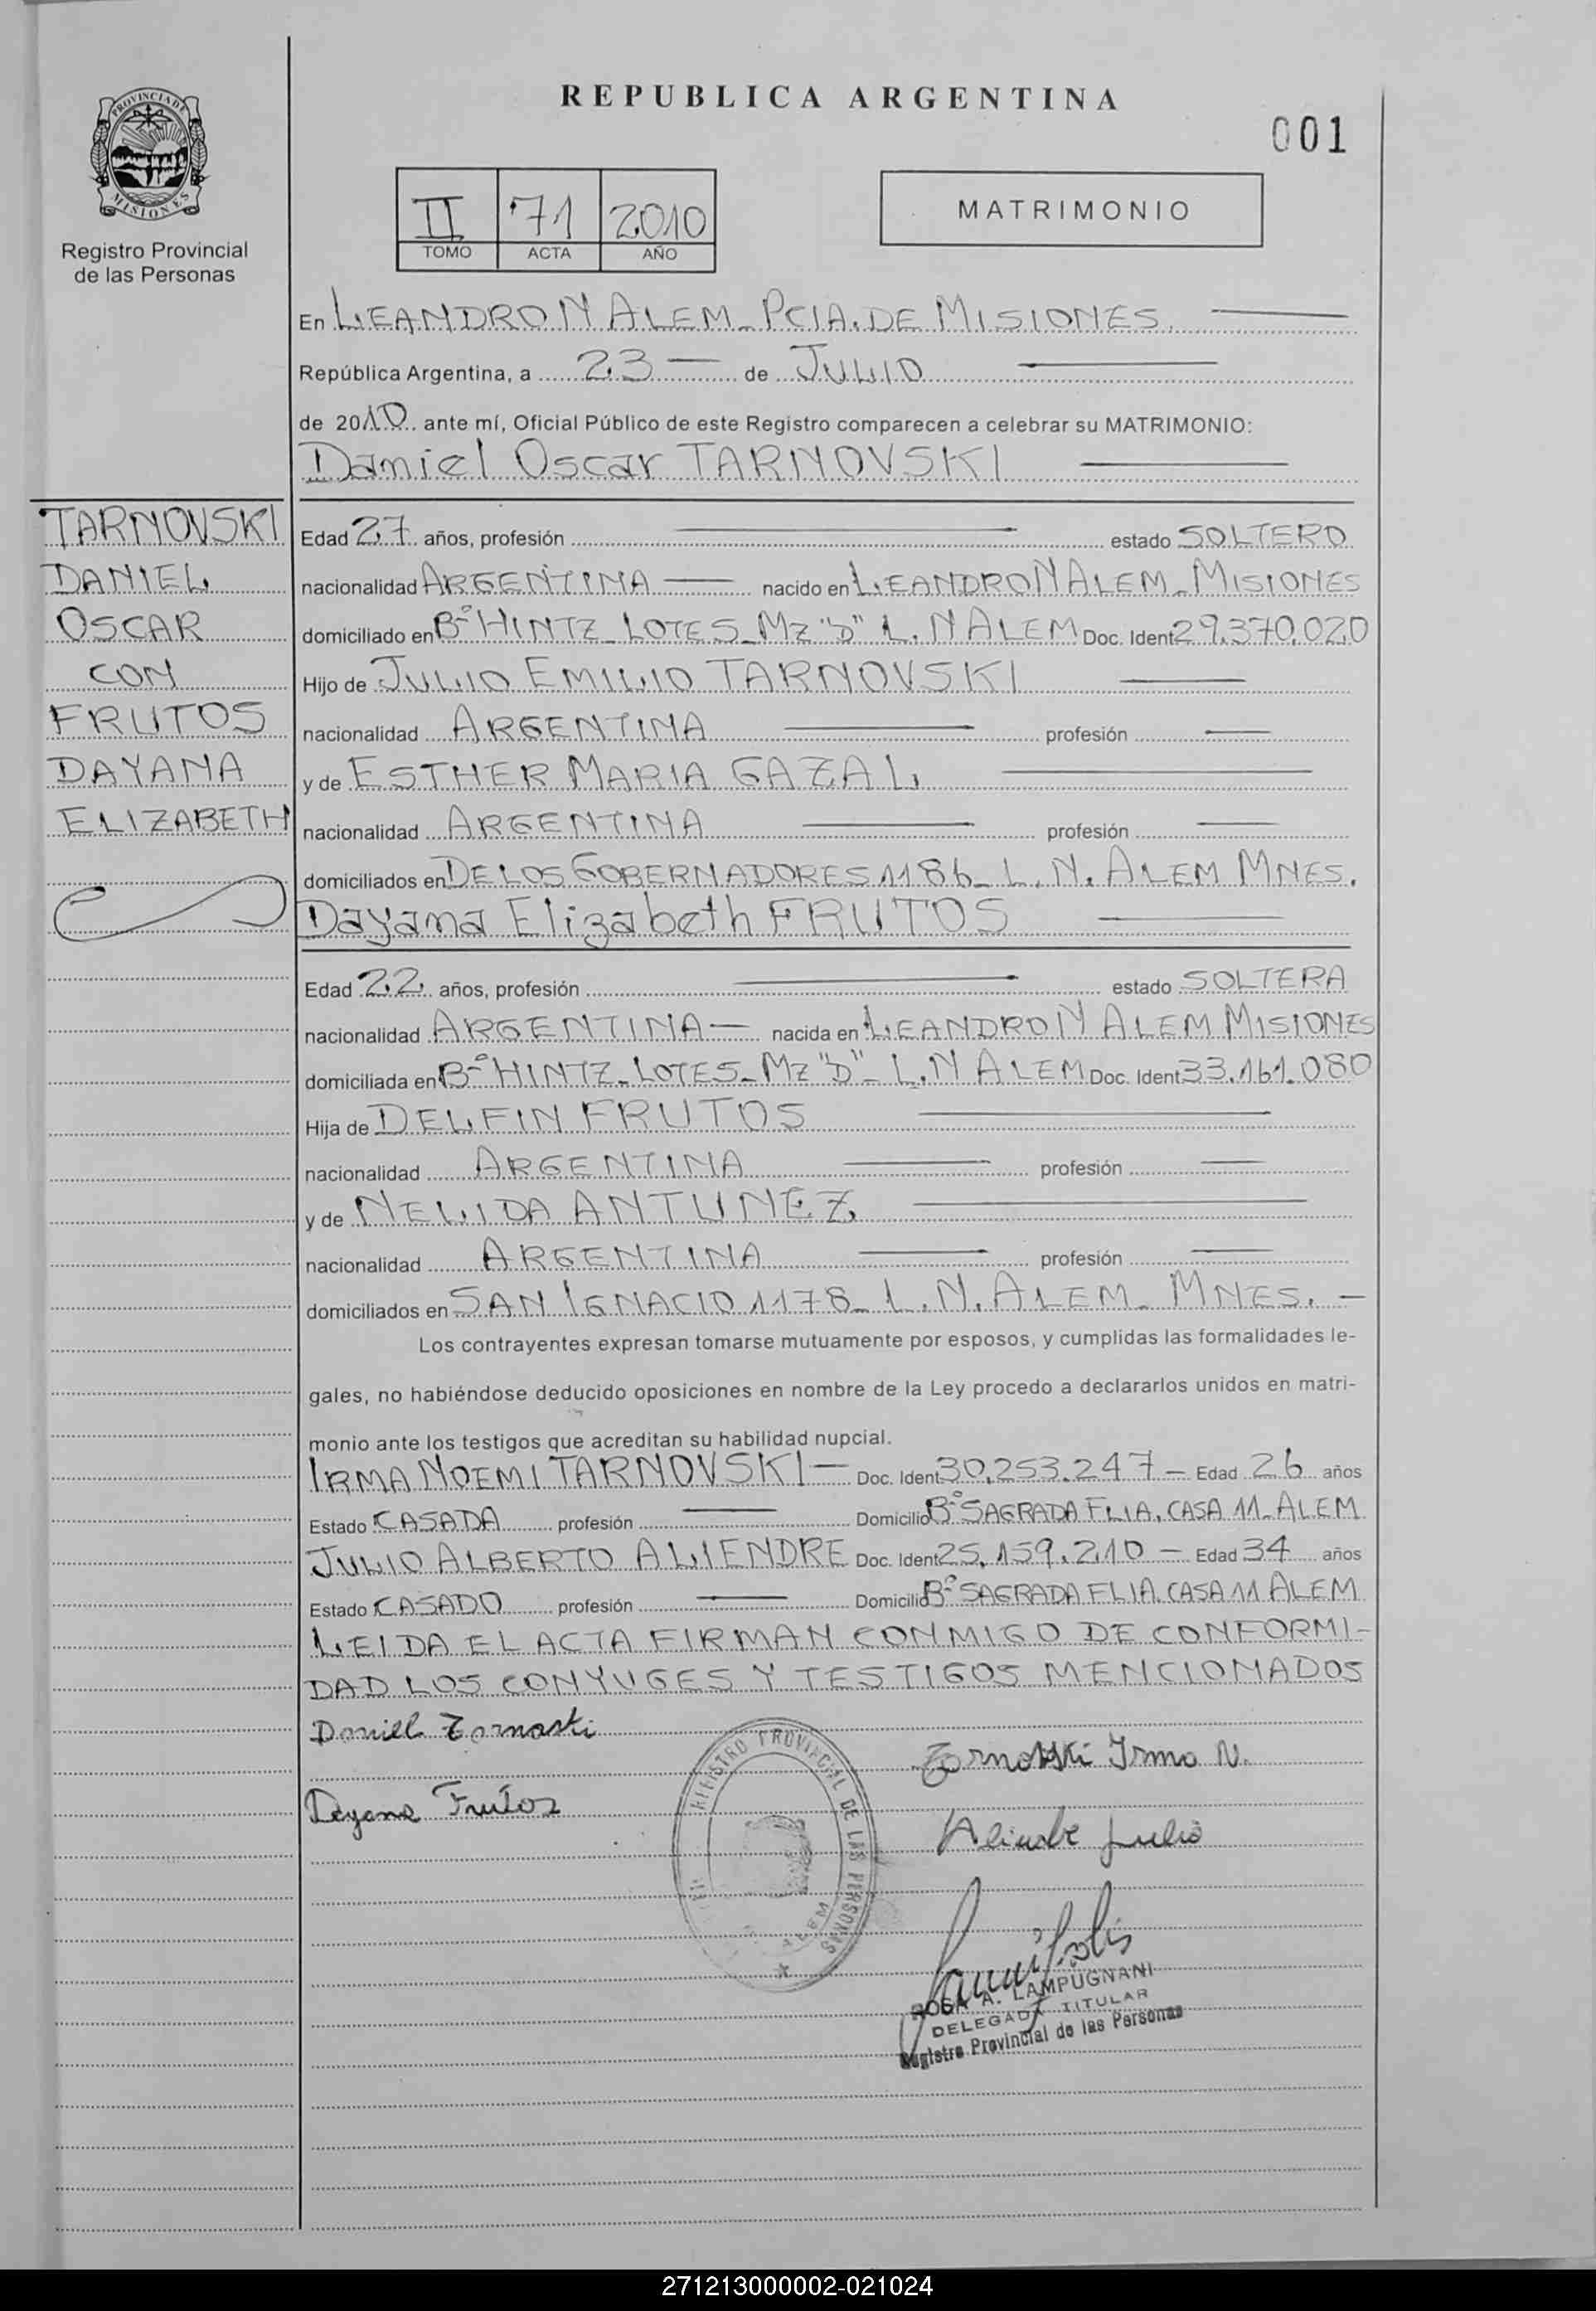 REPUBLICA ARGENTINA
001
PROVINCIA DE
MISIONES
Registro Provincial
de las Personas
II 71 2010
TOMO ACTA AÑO
MATRIMONIO
En LEANDRO N ALEM - PCIA. DE MISIONES.
República Argentina, a 23 — de JULIO
de 2010 ante mí, Oficial Público de este Registro comparecen a celebrar su MATRIMONIO:
Daniel Oscar TARNOVSKI
TARNOVSKI
DANIEL
OSCAR
CON
FRUTOS
DAYANA
ELIZABETH
Edad 27 años, profesión — estado SOLTERO
nacionalidad ARGENTINA — nacido en LEANDRO N ALEM - MISIONES
domiciliado en Bº HINTZ - LOTES - Mz "D" L. N ALEM Doc. Ident 29.370.020
Hijo de JULIO EMILIO TARNOVSKI
nacionalidad ARGENTINA — profesión —
y de ESTHER MARIA GAZAL
nacionalidad ARGENTINA — profesión —
domiciliados en DE LOS GOBERNADORES 1186 - L. N. ALEM MNES.
Dayana Elizabeth FRUTOS
Edad 22 años, profesión — estado SOLTERA
nacionalidad ARGENTINA — nacida en LEANDRO N ALEM MISIONES
domiciliada en Bº HINTZ - LOTES - Mz "D" - L. N ALEM Doc. Ident 33.161.080
Hija de DELFIN FRUTOS
nacionalidad ARGENTINA — profesión —
y de NELIDA ANTUNEZ
nacionalidad ARGENTINA — profesión —
domiciliados en SAN IGNACIO 1178 - L. N. ALEM - MNES. —
Los contrayentes expresan tomarse mutuamente por esposos, y cumplidas las formalidades le-
gales, no habiéndose deducido oposiciones en nombre de la Ley procedo a declararlos unidos en matri-
monio ante los testigos que acreditan su habilidad nupcial.
IRMA NOEMI TARNOVSKI — Doc. Ident 30.253.247 — Edad 26 años
Estado CASADA profesión — Domicilio Bº SAGRADA FLIA. CASA 11 - ALEM
JULIO ALBERTO ALIENDRE Doc. Ident 25.159.210 — Edad 34 años
Estado CASADO profesión — Domicilio Bº SAGRADA FLIA. CASA 11 ALEM
LEIDA EL ACTA FIRMAN CONMIGO DE CONFORMI-
DAD LOS CONYUGES Y TESTIGOS MENCIONADOS
Daniel Tarnoski
Tarnovski Irma N.
Dayana Frutos
Aliendre Julio
REGISTRO PROVINCIAL DE LAS PERSONAS
ALEM
ROSA A. LAMPUGNANI
DELEGADA TITULAR
Registro Provincial de las Personas
271213000002-021024